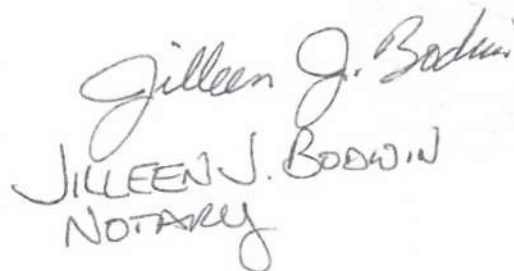 Jilleen J. Bodwin
JILLEEN J. BODWIN
NOTARY